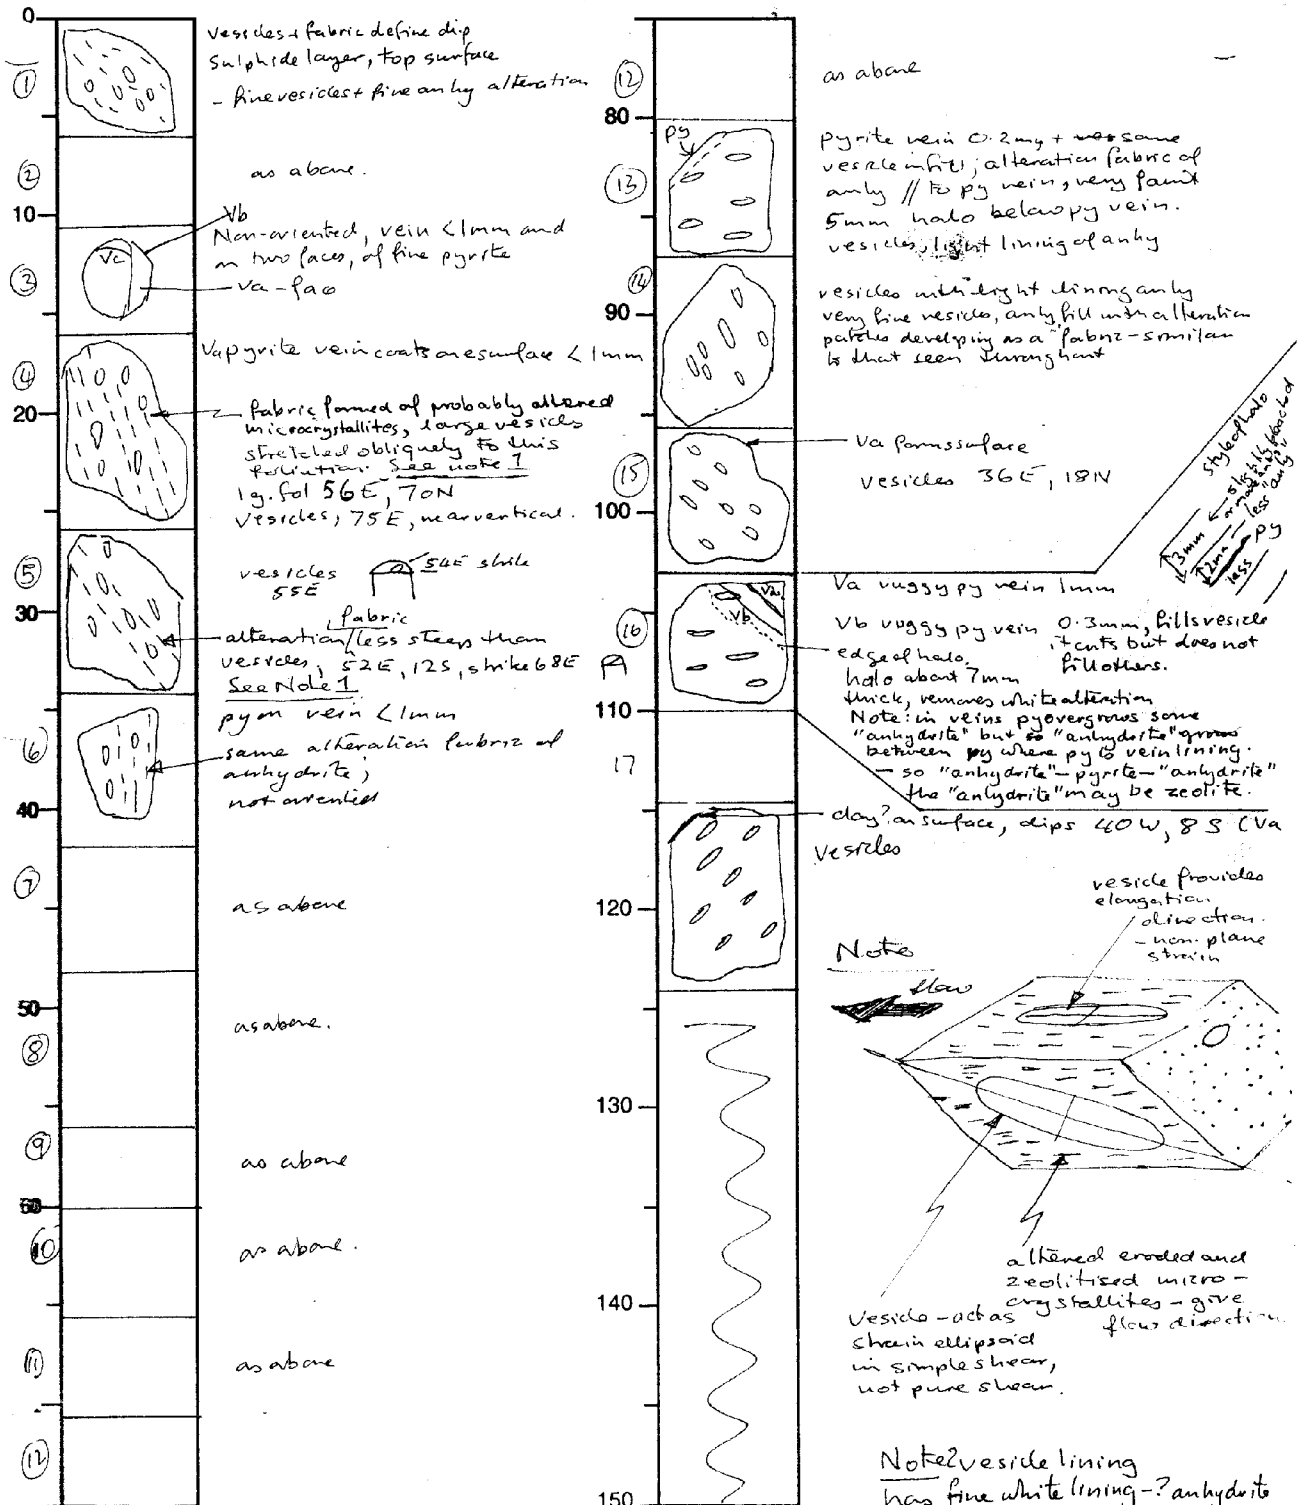 0
①
vesicles + fabric define dip
sulphide layer, top surface
- fine vesicles + fine anhy alteration
②
as above.
10
③
Vb
Non-oriented, vein <1mm and
on two faces, of fine pyrite
Va - face
Va
④
Va pyrite vein coats one surface <1mm
20
fabric formed of probably altered
microcrystallites, large vesicles
stretched obliquely to this
foliation. See note 1
ig. fol 56E, 70N
vesicles, 75E, near vertical.
⑤
vesicles
55E
54E strike
30
fabric
alteration / less steep than
vesicles, 52E, 12S, strike 68E
See Note 1
⑥
pyon vein <1mm
same alteration fabric of
anhydrite,
not oriented
40
⑦
as above
50
⑧
as above.
⑨
as above
60
⑩
as above.
⑪
as above
⑫
⑫
as above
80
py
⑬
pyrite vein 0.2mm + some
vesicle infill; alteration fabric of
anhy // to py vein, very faint
5mm halo below py vein.
vesicles, light lining of anhy
⑭
90
vesicles with light lining anhy
very fine vesicles, anhy fill with alteration
patches developing as a "fabric - similar
to that seen throughout
⑮
Va forms surface
vesicles 36E, 18N
100
style of halo
3mm
slightly reacted
or more "anhy"
2mm
less "anhy"
py
less
⑯
Va
Vb
Va vuggy py vein 1mm
Vb vuggy py vein 0.3mm, fills vesicle
it cuts but does not
fill others.
edge of halo,
halo about 7mm
thick, removes white alteration
Note: in veins py overgrows some
"anhydrite" but so "anhydrite" grows
between py where py is vein lining.
- so "anhydrite" - pyrite - "anhydrite"
the "anhydrite" may be zeolite.
110
17
clay? on surface, dips 40W, 8S (Va
vesicles
120
vesicle provides
elongation
direction.
- non-plane
strain
Note
flow
130
altered eroded and
zeolitised micro-
crystallites - give
flow direction.
140
Vesicle - act as
strain ellipsoid
in simple shear,
not pure shear.
150
Note 2 vesicle lining
has fine white lining - ? anhydrite